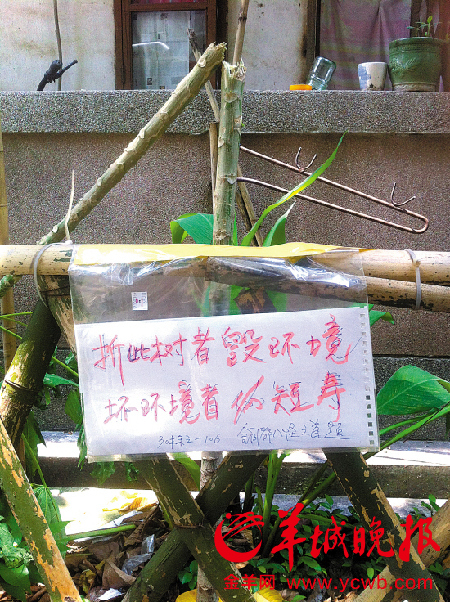 折此树者毁环境
坏环境者必短寿
羊城晚报
金羊网 www.ycwb.com